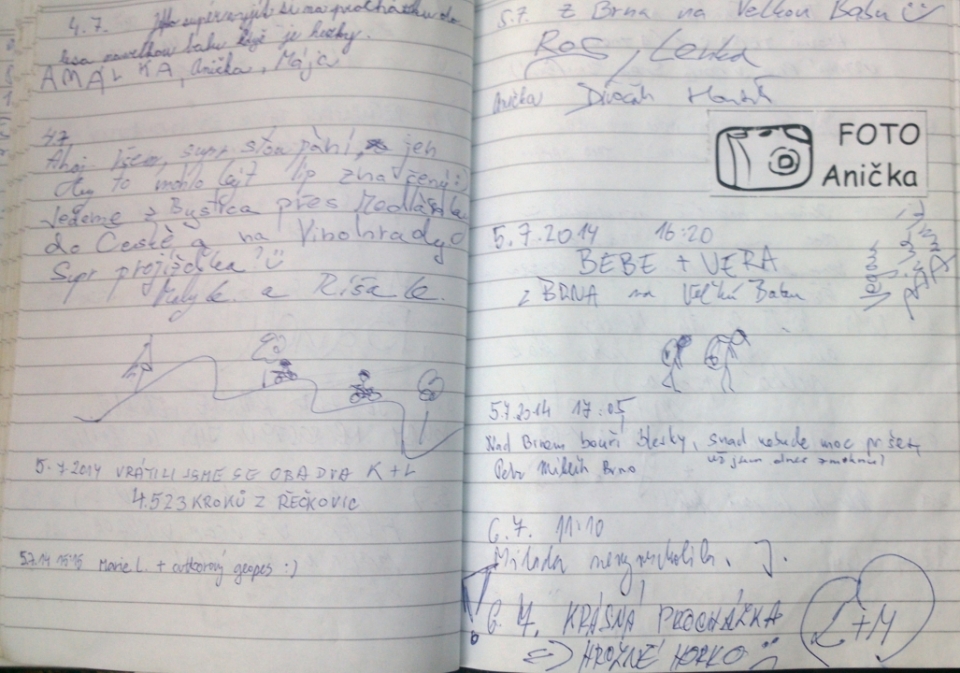 4.7.
do
lesa na velkou babu když je hezky.
AMÁLKA, Anička, Mája
4.7.
Ahoj všem, supr stoupání, jen
to mohlo být líp značený :)
Jedeme z Bystrca přes
do České a na Vinohrady
Supr projížďka!
a Ríša
5.7.2014 VRÁTILI JSME SE OBA DVA K + L
4.523 KROKŮ Z ŘEČKOVIC
5.7.14 15:15 Marie L. + outdorový geopes :)
5.7. z Brna na Velkou Babu
Lenka
Anička
FOTO
Anička
5.7.2014 16:20
BEBE + VERA
z BRNA na Velkú Babu
5.7.2014 17:05
Nad Brnem bouří blesky, snad nebude moc pršet,
už jsem dnes zmoknul
Petr Brno
6.7. 11:10
Milada
6.7. KRÁSNÁ PROCHÁZKA
HROZNÉ HORKO
L+M